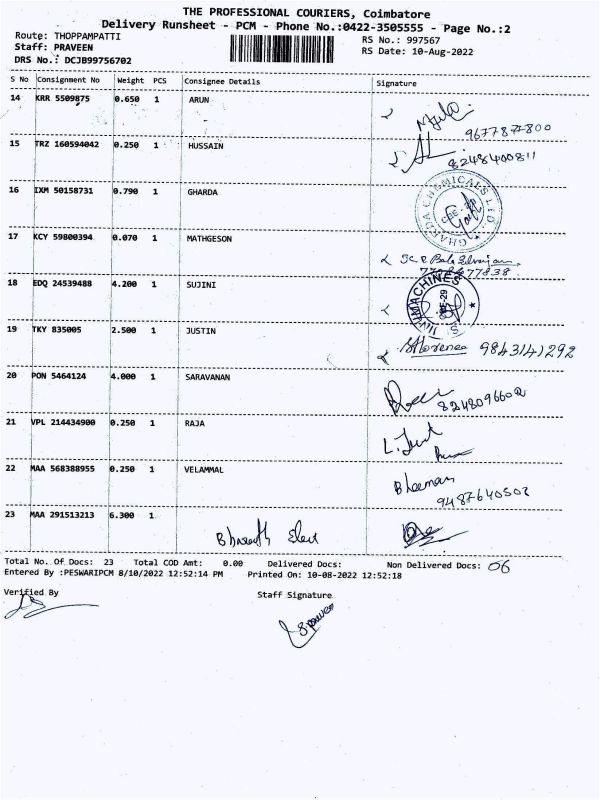 THE PROFESSIONAL COURIERS, Coimbatore
Delivery Runsheet - PCM - Phone No.:0422-3505555 - Page No.:2
Route: THOPPAMPATTI RS No.: 997567
Staff: PRAVEEN RS Date: 10-Aug-2022
DRS No.: DCJB99756702
S No Consignment No Weight PCS Consignee Details Signature
14 KRR 5509875 0.650 1 ARUN
967787800
15 TRZ 160594042 0.250 1 HUSSAIN
8248400811
16 IXM 50158731 0.790 1 GHARDA
GHARDA CHEMICALS LTD.
17 KCY 59800394 0.070 1 MATHGESON
7708477838
18 EDQ 24539488 4.200 1 SUJINI
19 TKY 835005 2.500 1 JUSTIN
9843141292
20 PON 5464124 4.000 1 SARAVANAN
8248096602
21 VPL 214434900 0.250 1 RAJA
22 MAA 568388955 0.250 1 VELAMMAL
Bheeman
9487640502
23 MAA 291513213 6.300 1
Total No. Of Docs: 23 Total COD Amt: 0.00 Delivered Docs: Non Delivered Docs: 06
Entered By :PESWARIPCM 8/10/2022 12:52:14 PM Printed On: 10-08-2022 12:52:18
Verified By Staff Signature